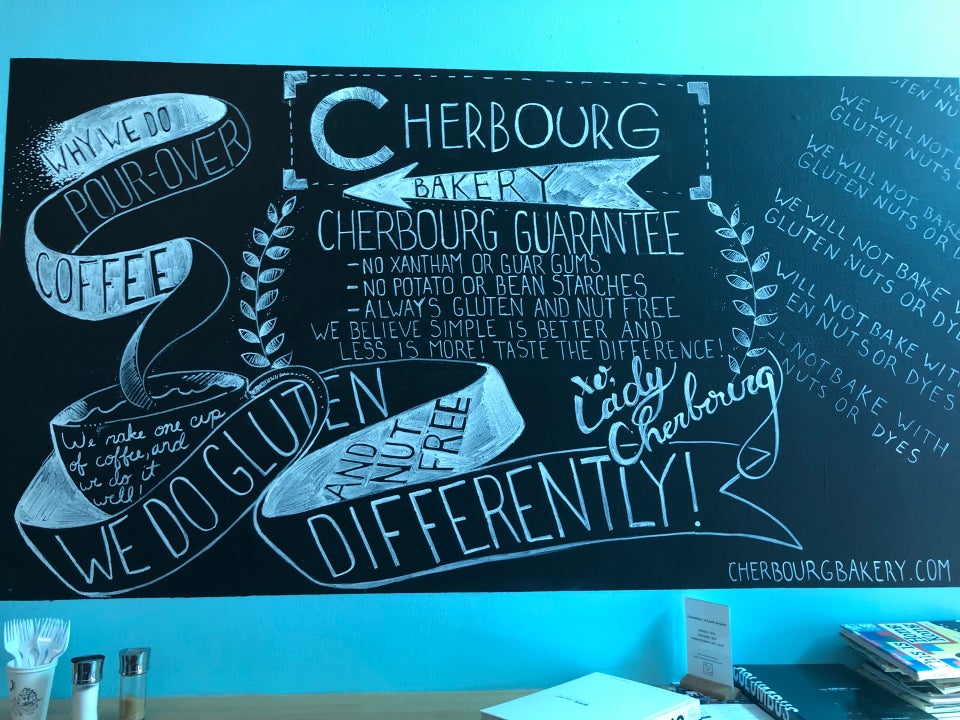 WHY WE DO
POUR-OVER
COFFEE
We make one cup
of coffee, and
we do it
well!
CHERBOURG
BAKERY
CHERBOURG GUARANTEE
-NO XANTHAM OR GUAR GUMS
-NO POTATO OR BEAN STARCHES
-ALWAYS GLUTEN AND NUT FREE
WE BELIEVE SIMPLE IS BETTER AND
LESS IS MORE! TASTE THE DIFFERENCE!
xo,
Lady
Cherbourg
WE DO GLUTEN
AND
NUT
FREE
DIFFERENTLY!
WE WILL NOT
GLUTEN NUTS
WE WILL NOT BAKE
GLUTEN NUTS OR
WE WILL NOT BAKE
GLUTEN NUTS OR
WILL NOT BAKE WITH
NUTS OR DYES
NOT BAKE WITH
NUTS OR DYES
CHERBOURGBAKERY.COM
COLUMBUS